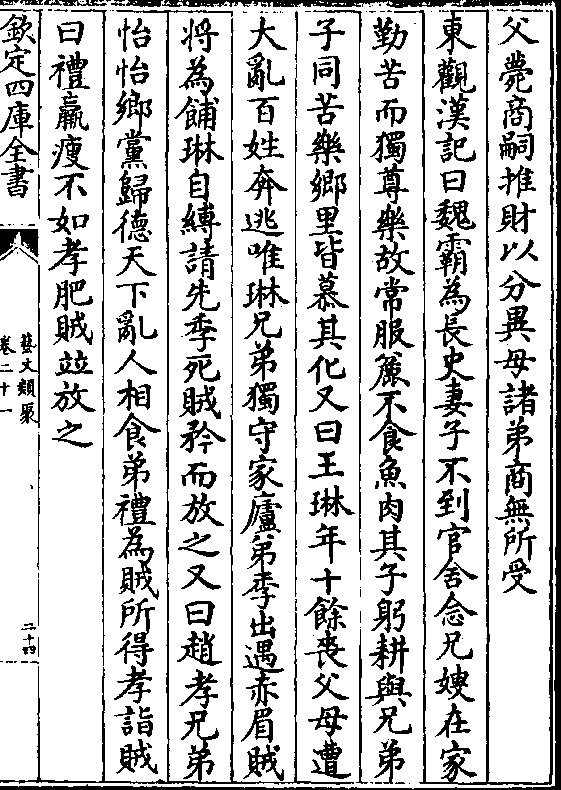 父薨商嗣推財以分異母諸弟商無所受
東觀漢記曰魏霸為長史妻子不到官舍念兄嫂在家
勤苦而獨尊樂故常服麄不食魚肉其子躬耕與兄弟
子同苦樂鄉里皆慕其化又曰王琳年十餘喪父母遭
大亂百姓奔逃唯琳兄弟獨守家廬弟季出遇赤眉賊
將為餔琳自縛請先季死賊矜而放之又曰趙孝兄弟
怡怡鄉黨歸德天下亂人相食弟禮為賊所得孝詣賊
曰禮羸瘦不如孝肥賊並放之
欽定四庫全書
藝文類聚
卷二十一
二十四